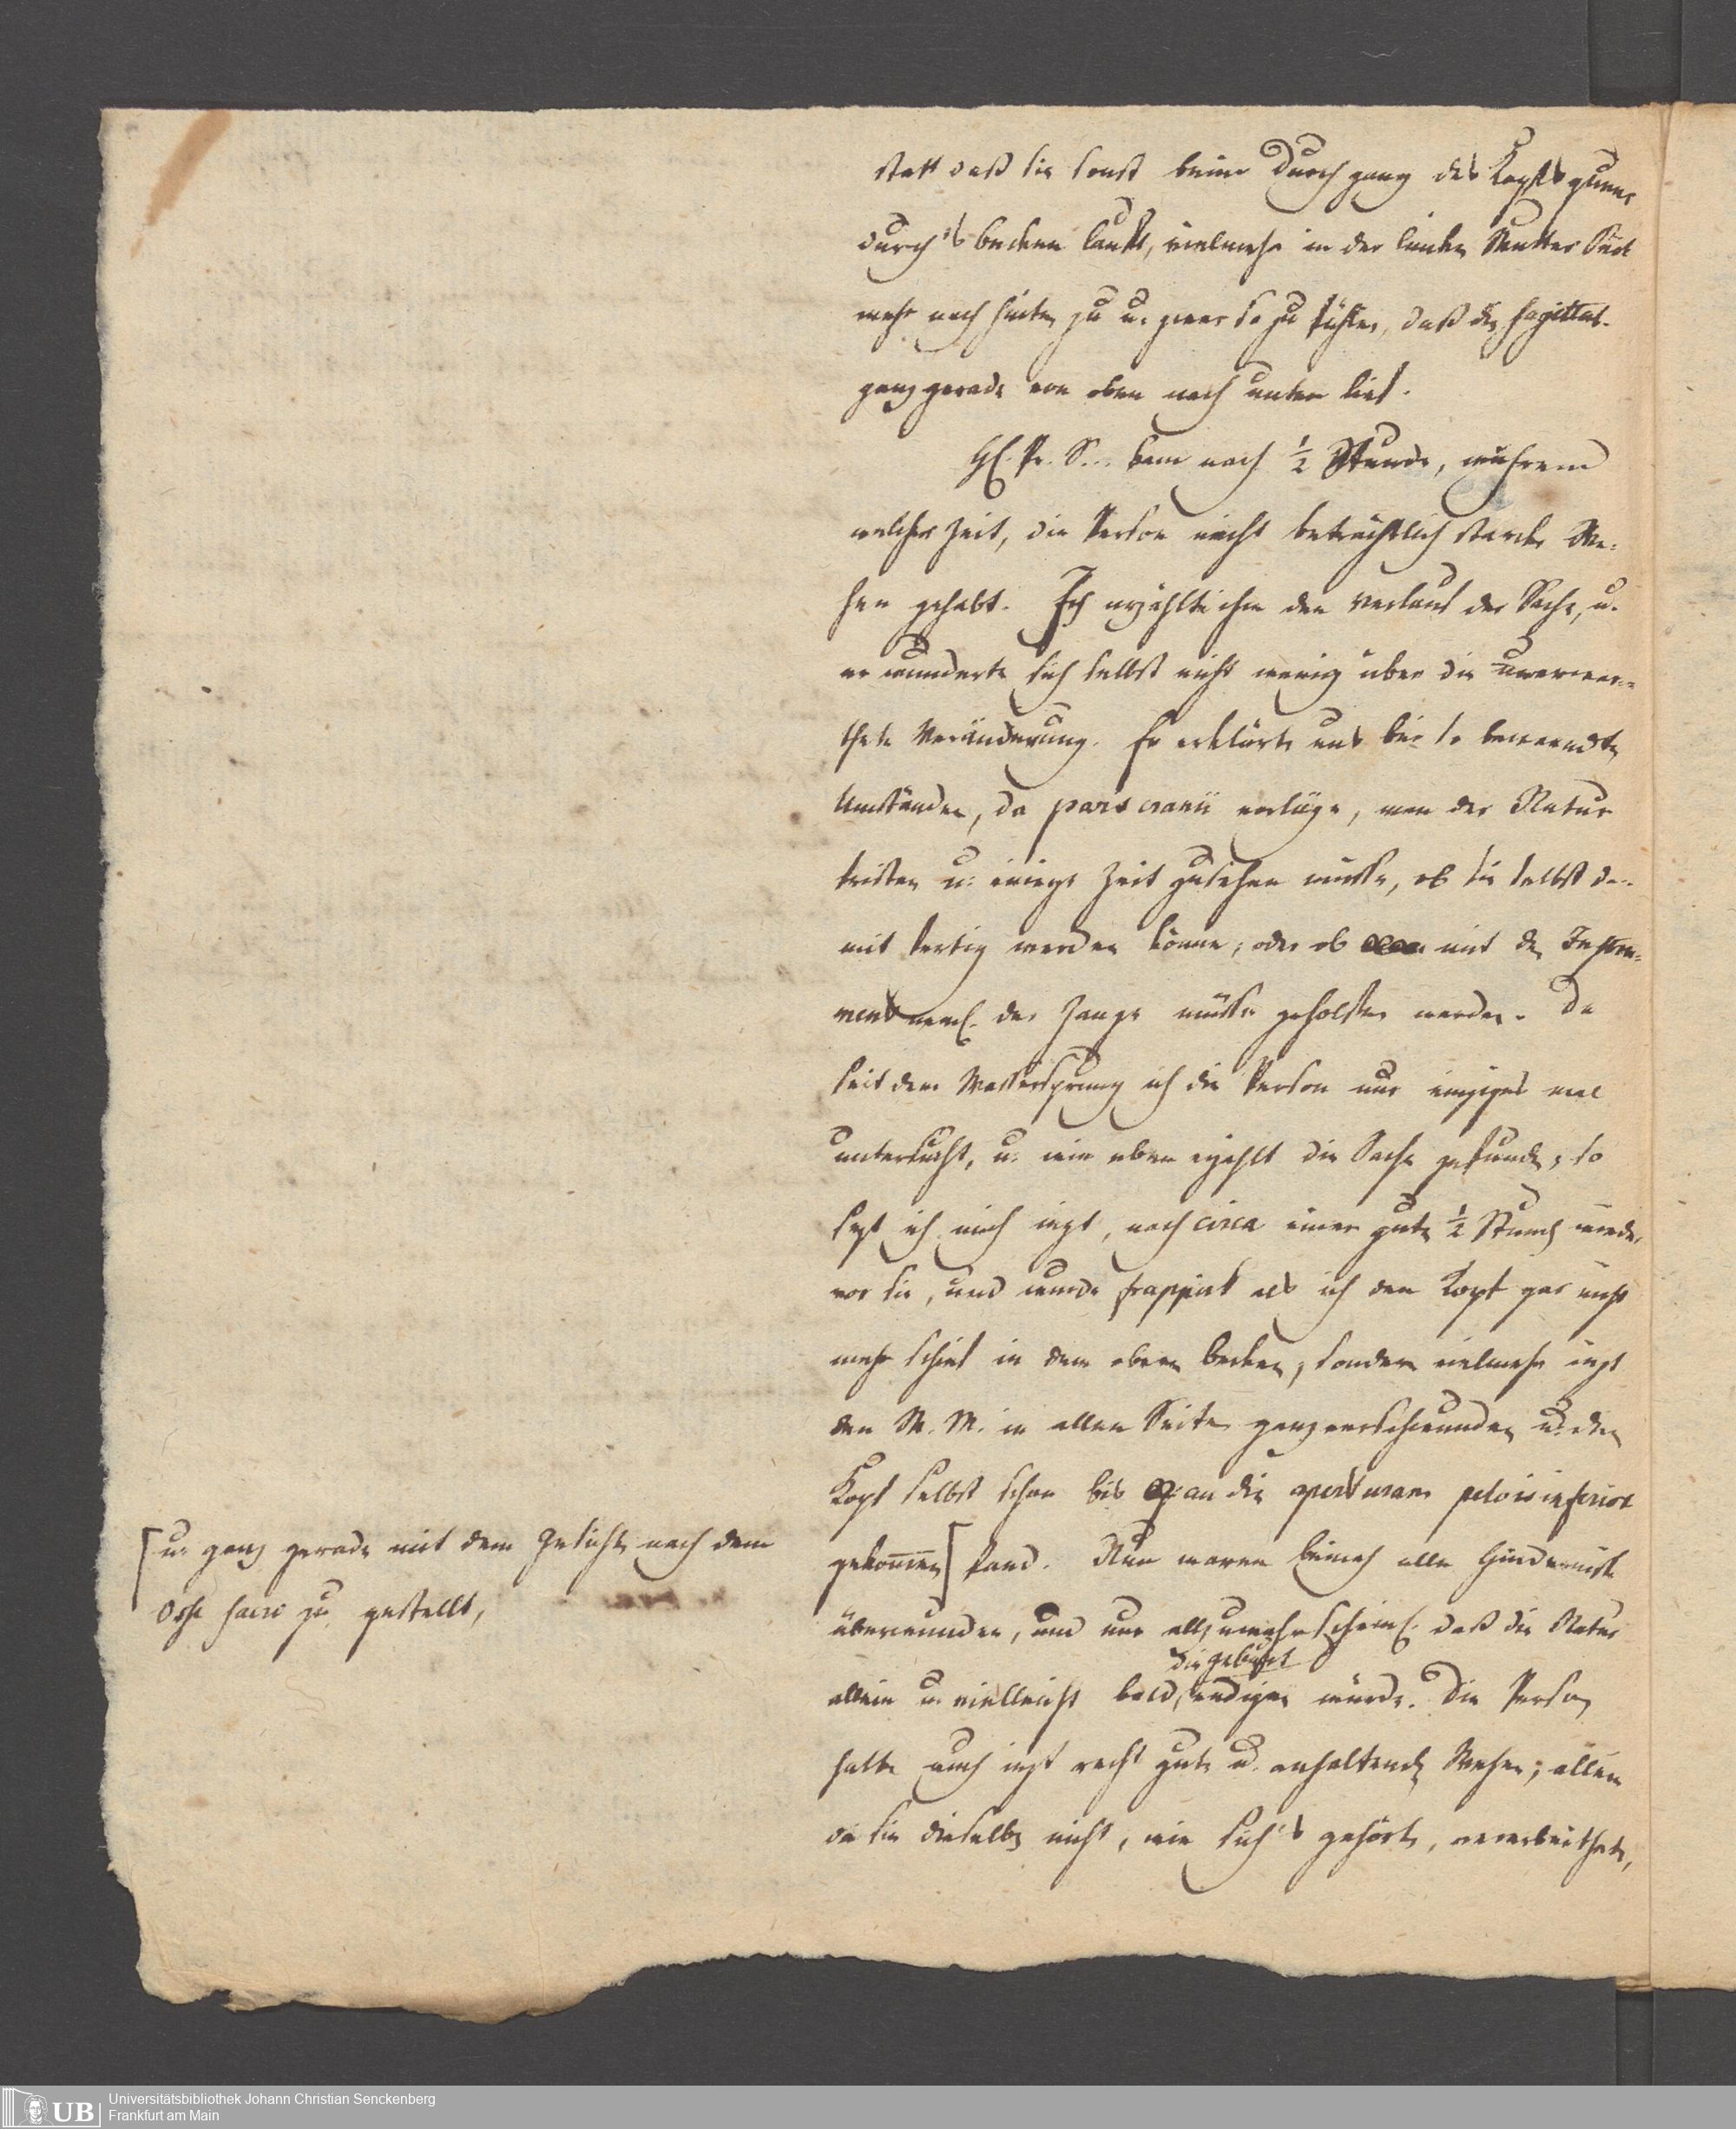 statt daß sie sonst beim Durchgang des Kopfs quer
durch's becken lauft, vielmehr in der linken Mutter Seit
mehr nach hinten zu u. zwar so zu fühlen, daß die sagittal-
ganz gerade von oben nach unten lief.
H. Pr. S... kam nach ½ Stunde, während
welcher Zeit, die Person nicht beträchtlich starke We-
hen gehabt. Ich erzählte ihm den Verlauf der Sache, u.
er wunderte sich selbst nicht wenig über die unerwar-
thete Veränderung. Er erklärte uns bei so bewandten
Umständen, da pars cranii vorläge, man der Natur
fristen u. einige Zeit zusehen müsse, ob sie selbst da-
mit fertig werden könne, oder ob mit den Instru-
ment neml. der Zange müsse geholfen werden. Da
seit dem Wassersprung ich die Person nur einziges mal
untersucht, u. wie oben erzehlt die Sache gefunden, so
sezt ich mich iezt, nach circa einer guten ½ Stund wieder
vor sie, und wurde frappirt als ich den Kopf gar nicht
mehr schief in dem obern becken, sondern vielmehr iezt
den M. M. in allen Seiten ganz verschwunden u. den
Kopf selbst schon bis an die aperturam pelvis inferior
gekommen [ fand. Nun waren beinah alle Hindernisse
[ u. ganz gerade mit dem Gesichte nach dem
Osse sacro zu gestellt,
überwunden, und nur allzuwahrscheinl. daß die Natur
die geburt
allein u. vielleicht bald endigen würde. Die Person
hatte auch iezt recht gute u. anhaltende Wehen; allein
da sie dieselbe nicht, wie sich's gehört, verarbeithete,
Universitätsbibliothek Johann Christian Senckenberg
Frankfurt am Main
UB